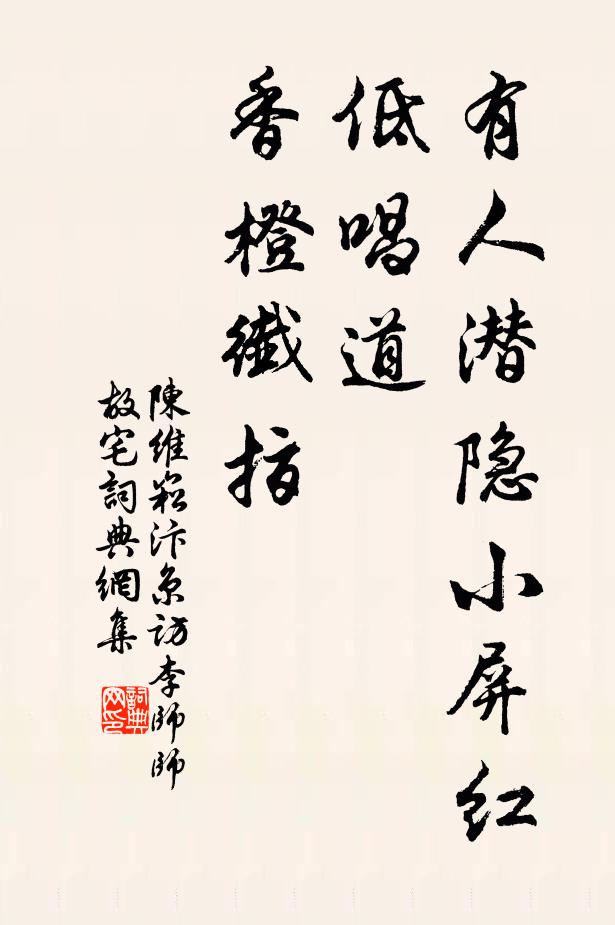 有人潜隐小屏红
低唱道
香橙纖指
陳維崧汴京訪李師師
故宅詞典網集
詞典网印